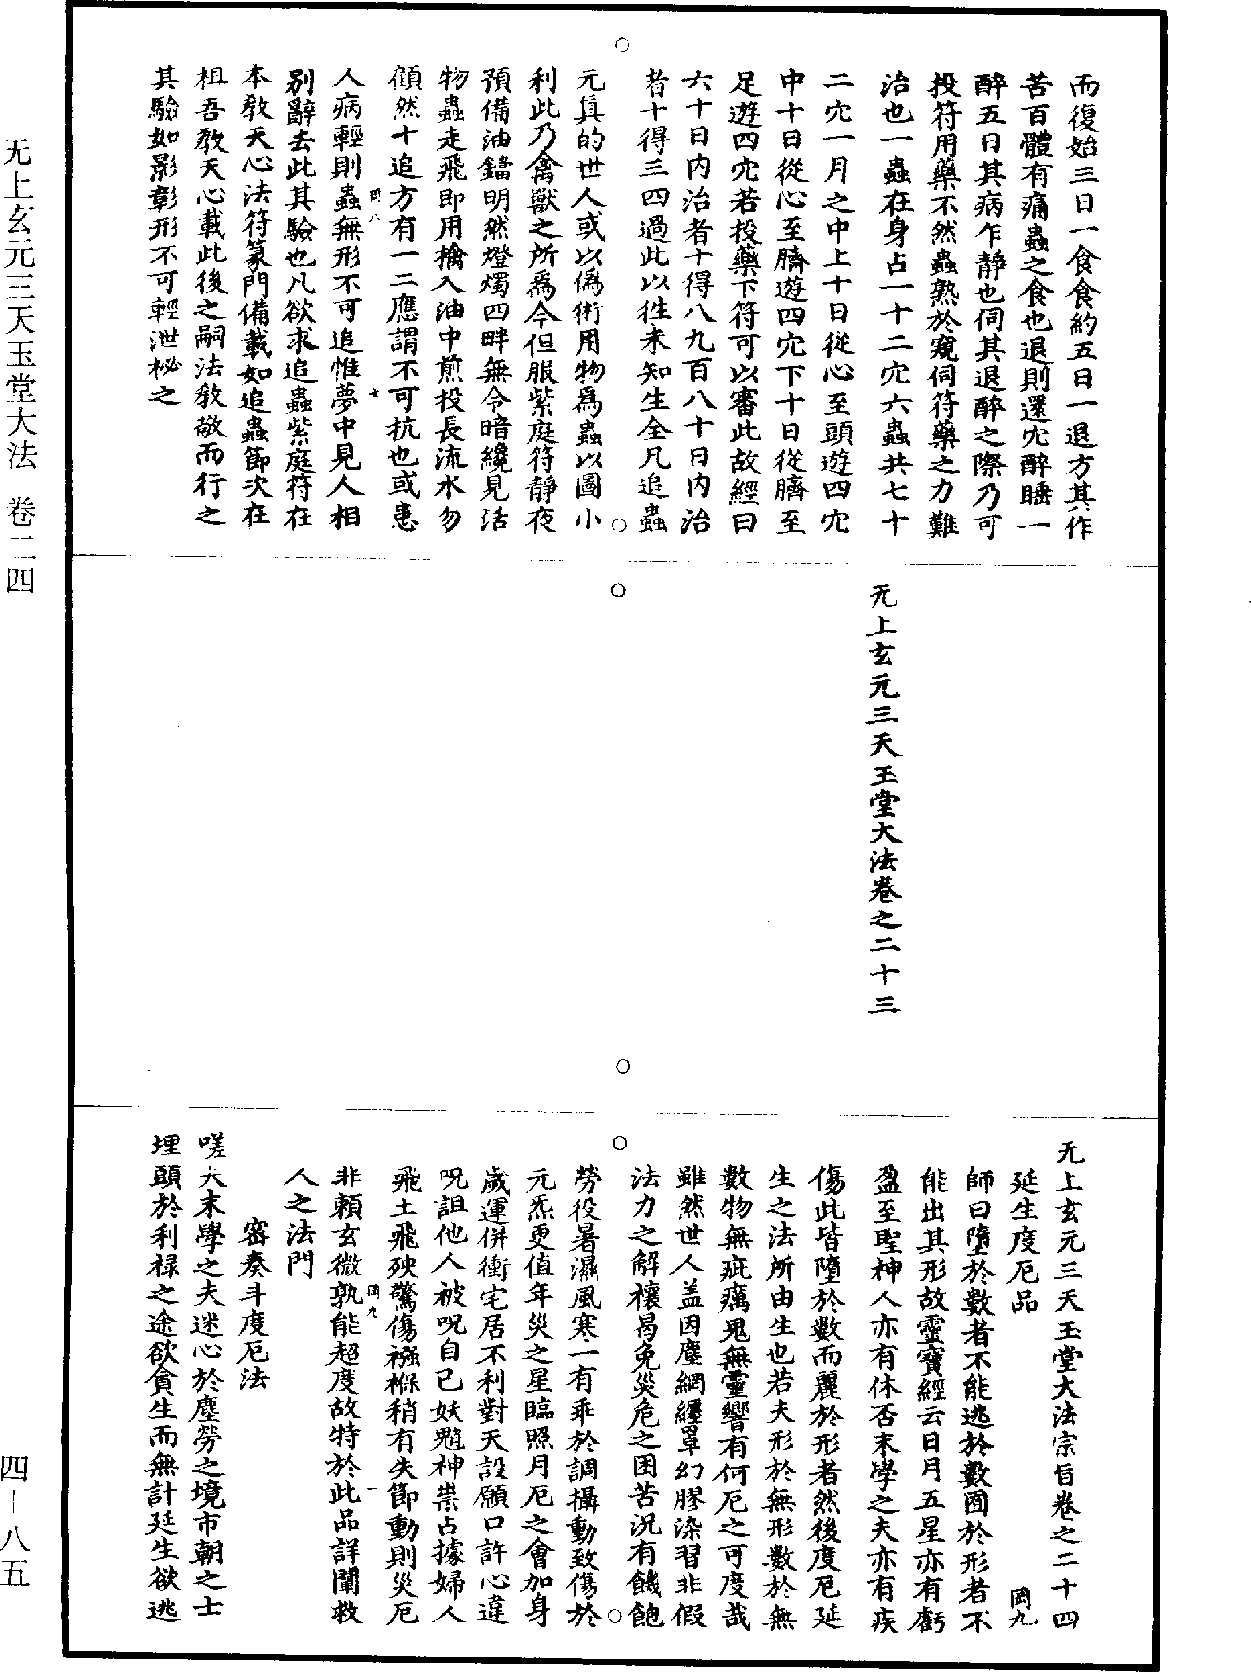 而復始三日一食食約五日一退方其作
苦百體有痛蟲之食也退則還穴醉睡一
醉五日其病乍靜也伺其退醉之際乃可
投符用藥不然蟲熟於窺伺符藥之力難
治也一蟲在身占一十二穴六蟲共七十
二穴一月之中上十日從心至頭遊四穴
中十日從心至臍遊四穴下十日從臍至
足遊四穴若投藥下符可以審此故經曰
六十日內治者十得八九百八十日內治
者十得三四過此以徃未知生全凡追蟲
元真的世人或以僞術用物爲蟲以圖小
利此乃禽獸之所爲今但服紫庭符靜夜
預備油鐺明然燈燭四畔無令暗纔見活
物蟲走飛即用擒入油中煎投長流水勿
傾然十追方有一二應謂不可抗也或患
人病輕則蟲無形不可追惟夢中見人相
別辭去此其驗也凡欲求追蟲紫庭符在
本教天心法符篆門備載如追蟲節次在
柤吾教天心載此後之嗣法教敬而行之
其驗如影彰形不可輕泄祕之
无上玄元三天玉堂大法卷之二十三
无上玄元三天玉堂大法宗旨卷之二十四
延生度厄品
師曰墮於數者不能逃於數囿於形者不
能出其形故靈寶經云日月五星亦有虧
盈至聖神人亦有休否末學之夫亦有疾
傷此皆墮於數而麗於形者然後度厄延
生之法所由生也若夫形於無形數於無
數物無疵癘鬼無靈響有何厄之可度哉
雖然世人盖因塵網纏罩幻膠染習非假
法力之解禳曷免災危之困苦況有饑飽
勞役暑濕風寒一有乖於調攝動致傷於
元炁更值年災之星臨照月厄之會加身
歲運併衝宅居不利對天設願口許心違
呪詛他人被呪自己妖魈神祟占據婦人
飛土飛殃驚傷襁褓稍有失節動則災厄
非賴玄微孰能超度故特於此品詳闡救
人之法門
密奏斗度厄法
嗟夫末學之夫迷心於塵勞之境市朝之士
埋頭於利祿之途欲貪生而無計延生欲逃
无上玄元三天玉堂大法　卷二四
四－八五